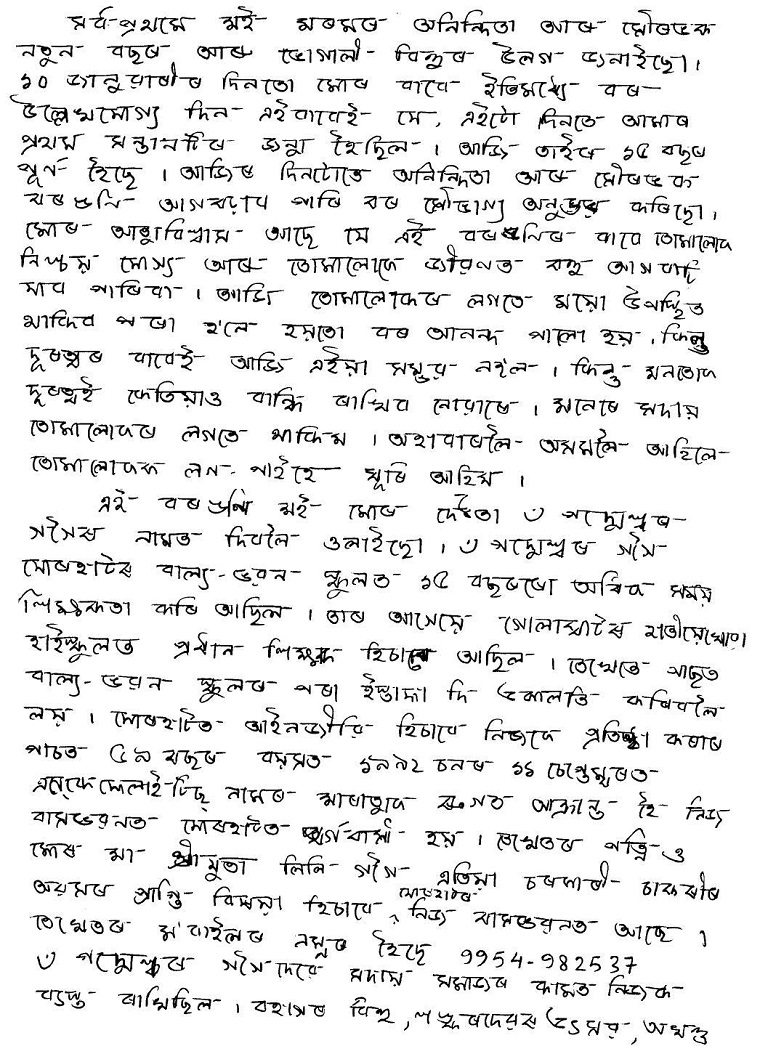 সৰ্বপ্ৰথমে মই মৰমৰ অনিন্দিতা আৰু সৌৰভক
নতুন বছৰ আৰু ভোগালী বিহুৰ ওলগ জনাইছো।
১০ জানুৱাৰীৰ দিনতো মোৰ বাবে ইতিমধ্যে বৰ
উল্লেখযোগ্য দিন এইবাবেই যে, এইটো দিনতে আমাৰ
প্ৰথম সন্তানটিৰ জন্ম হৈছিল। আজি তাইৰ ১৫ বছৰ
পূৰ্ন হৈছে। আজিৰ দিনটোতে অনিন্দিতা আৰু সৌৰভক
বৰষুনি আগবঢ়াব পাৰি বৰ সৌভাগ্য অনুভৱ কৰিছো।
মোৰ আত্মবিশ্বাস আছে যে এই বৰষুনিৰ বাবে তোমালোক
নিশ্চয় যোগ্য আৰু তোমালোকে জীৱনত বহু আগবাঢ়ি
যাব পাৰিবা। আজি তোমালোকৰ লগতে ময়ো উপস্থিত
থাকিব পৰা হ'লে হয়তো বৰ আনন্দ পালো হয়, কিন্তু
দূৰত্বৰ বাবেই আজি এইয়া সম্ভৱ নহ'ল। কিন্তু মনতোক
দূৰত্বই কেতিয়াও বান্ধি ৰাখিব নোৱাৰে। মনেৰে সদায়
তোমালোকৰ লগতে থাকিম। অহাবাৰলৈ অসমলৈ আহিলে
তোমালোকক লগ পাইহে ঘূৰি আহিম।
এই বৰষুনি মই মোৰ দেউতা ৺ পদ্মেশ্বৰ
গগৈৰ নামত দিবলৈ ওলাইছো। ৺ পদ্মেশ্বৰ গগৈ
যোৰহাটৰ বাল্য-ভৱন স্কুলত ১৫ বছৰৰো অধিক সময়
শিক্ষকতা কৰি আছিল। তাৰ আগেয়ে গোলাঘাটৰ
হাইস্কুলত প্ৰধান শিক্ষক হিচাবে আছিল। তেখেতে পাছত
বাল্য-ভৱন স্কুলৰ পৰা ইস্তাফা দি ওকালতি কৰিবলৈ
লয়। যোৰহাটত আইনজীৱি হিচাবে নিজকে প্ৰতিষ্ঠা কৰাৰ
পাচত ৫৯ বছৰ বয়সত ১৯৯২ চনৰ ১১ চেপ্তেম্বৰত
এনকেফেলাইটিচ্ নামৰ মাৰাত্মক ৰোগত আক্ৰান্ত হৈ নিজ
বাসভৱনত যোৰহাটত স্বৰ্গবাসী হয়। তেখেতৰ পত্নি ও
মোৰ মা শ্ৰীযুতা লিলি গগৈ এতিয়া চৰকাৰী চাকৰীৰ
অৱসৰ প্ৰাপ্তি বিষয়া হিচাবে যোৰহাটৰ নিজ বাসভৱনত আছে।
তেখেতৰ ম'বাইলৰ নম্বৰ হৈছে 9954-982537
৺ পদ্মেশ্বৰ গগৈদেৱে সদায় সমাজৰ কামত নিজক
ব্যস্ত ৰাখিছিল। বহাগৰ বিহু, শঙ্কৰদেৱৰ উৎসৱ, অখণ্ড